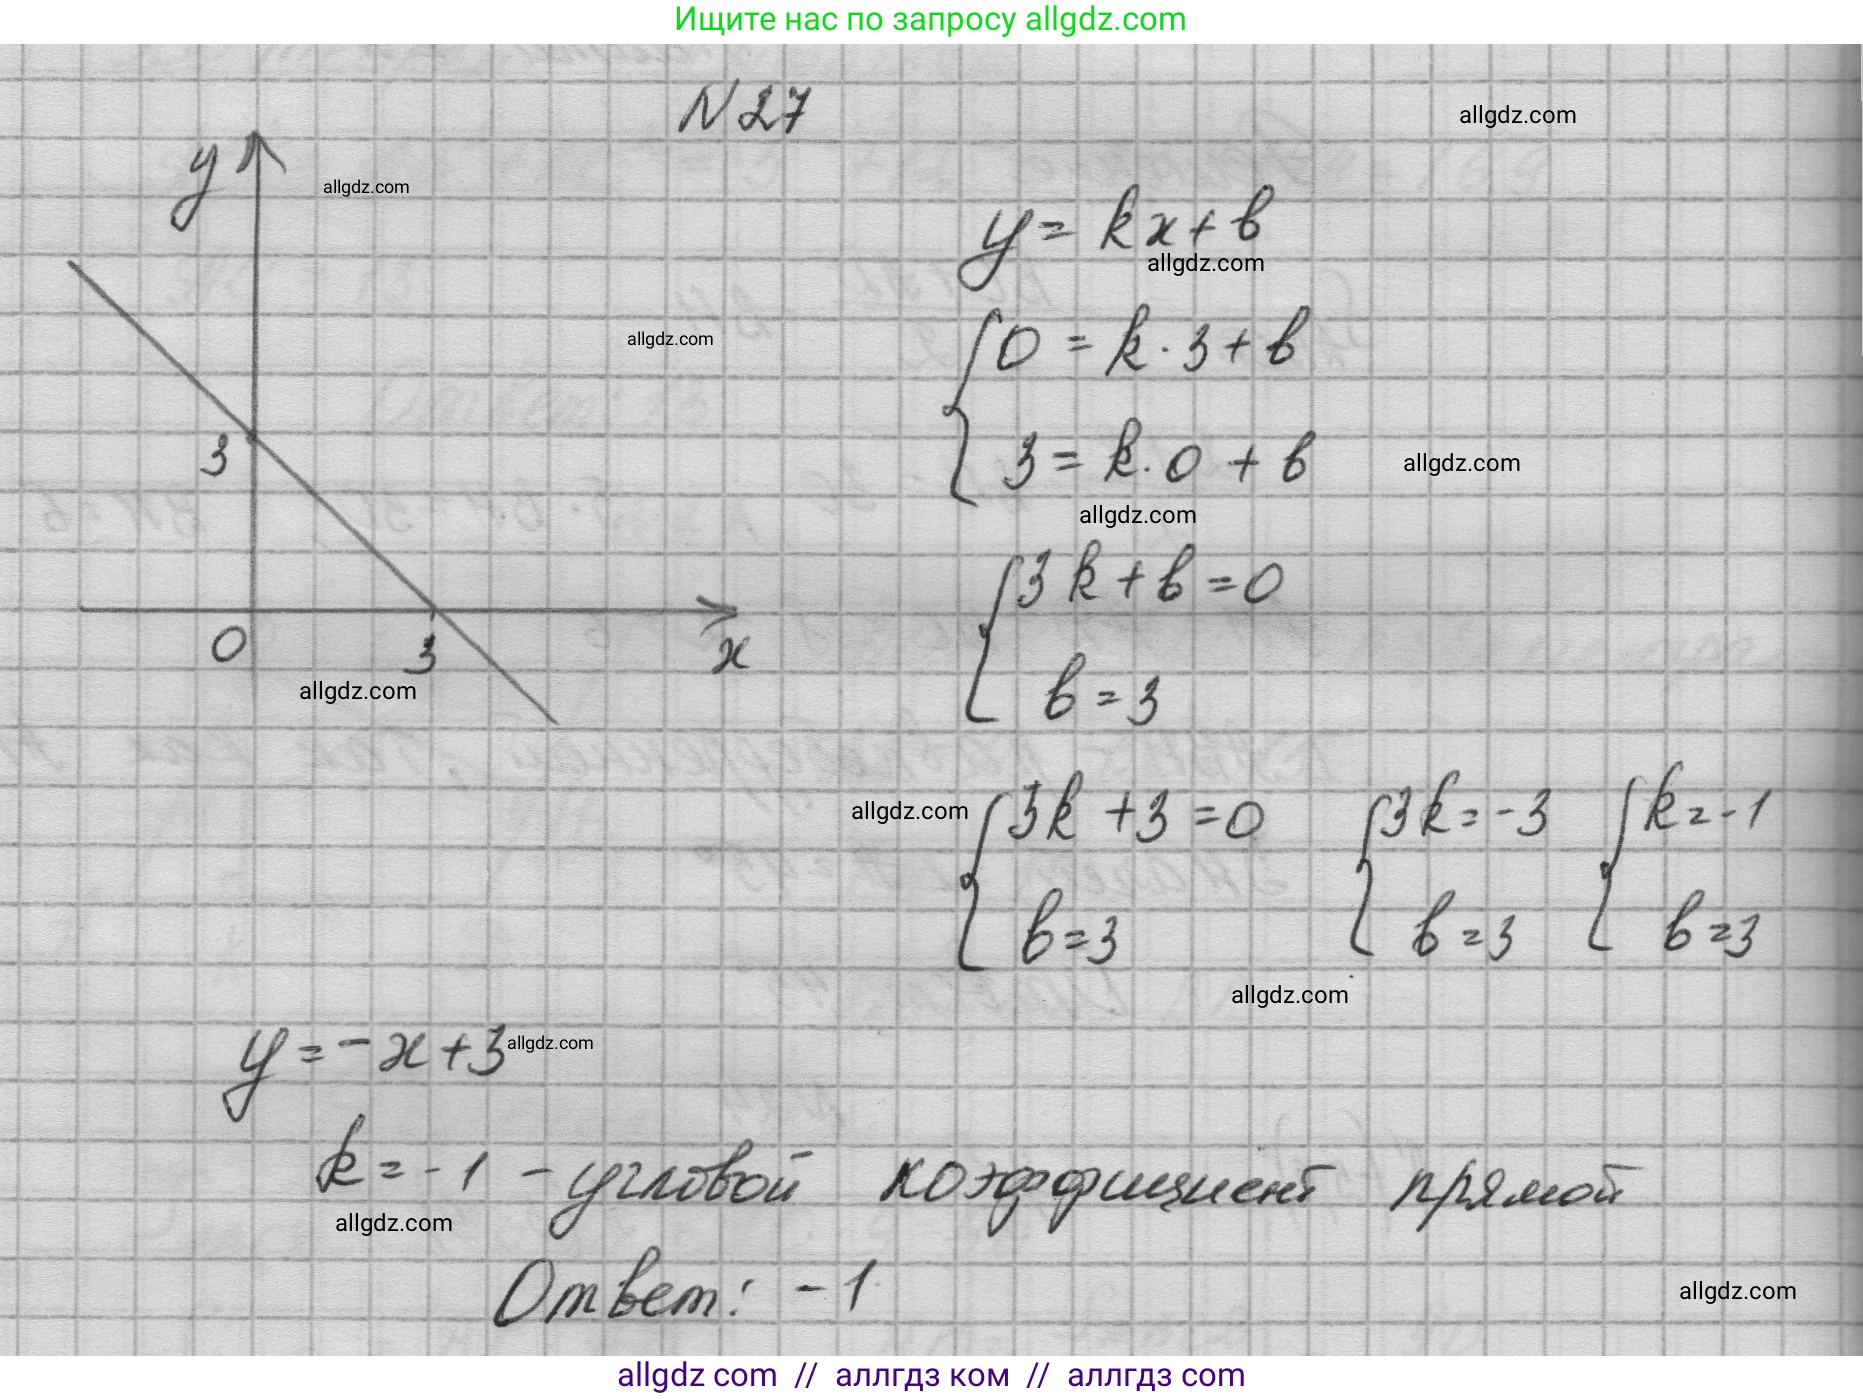 Ищите нас по запросу allgdz.com
N27
allgdz.com
y
allgdz.com
y = kx + b
allgdz.com
0 = k · 3 + b
allgdz.com
3
3 = k · 0 + b
allgdz.com
allgdz.com
3k + b = 0
0
3
x
b = 3
allgdz.com
allgdz.com
3k + 3 = 0
3k = -3
k = -1
b = 3
b = 3
b = 3
allgdz.com
y = -x + 3
allgdz.com
k = -1 - угловой коэффициент прямой
allgdz.com
Ответ: -1
allgdz.com
allgdz com // аллгдз ком // аллгдз com